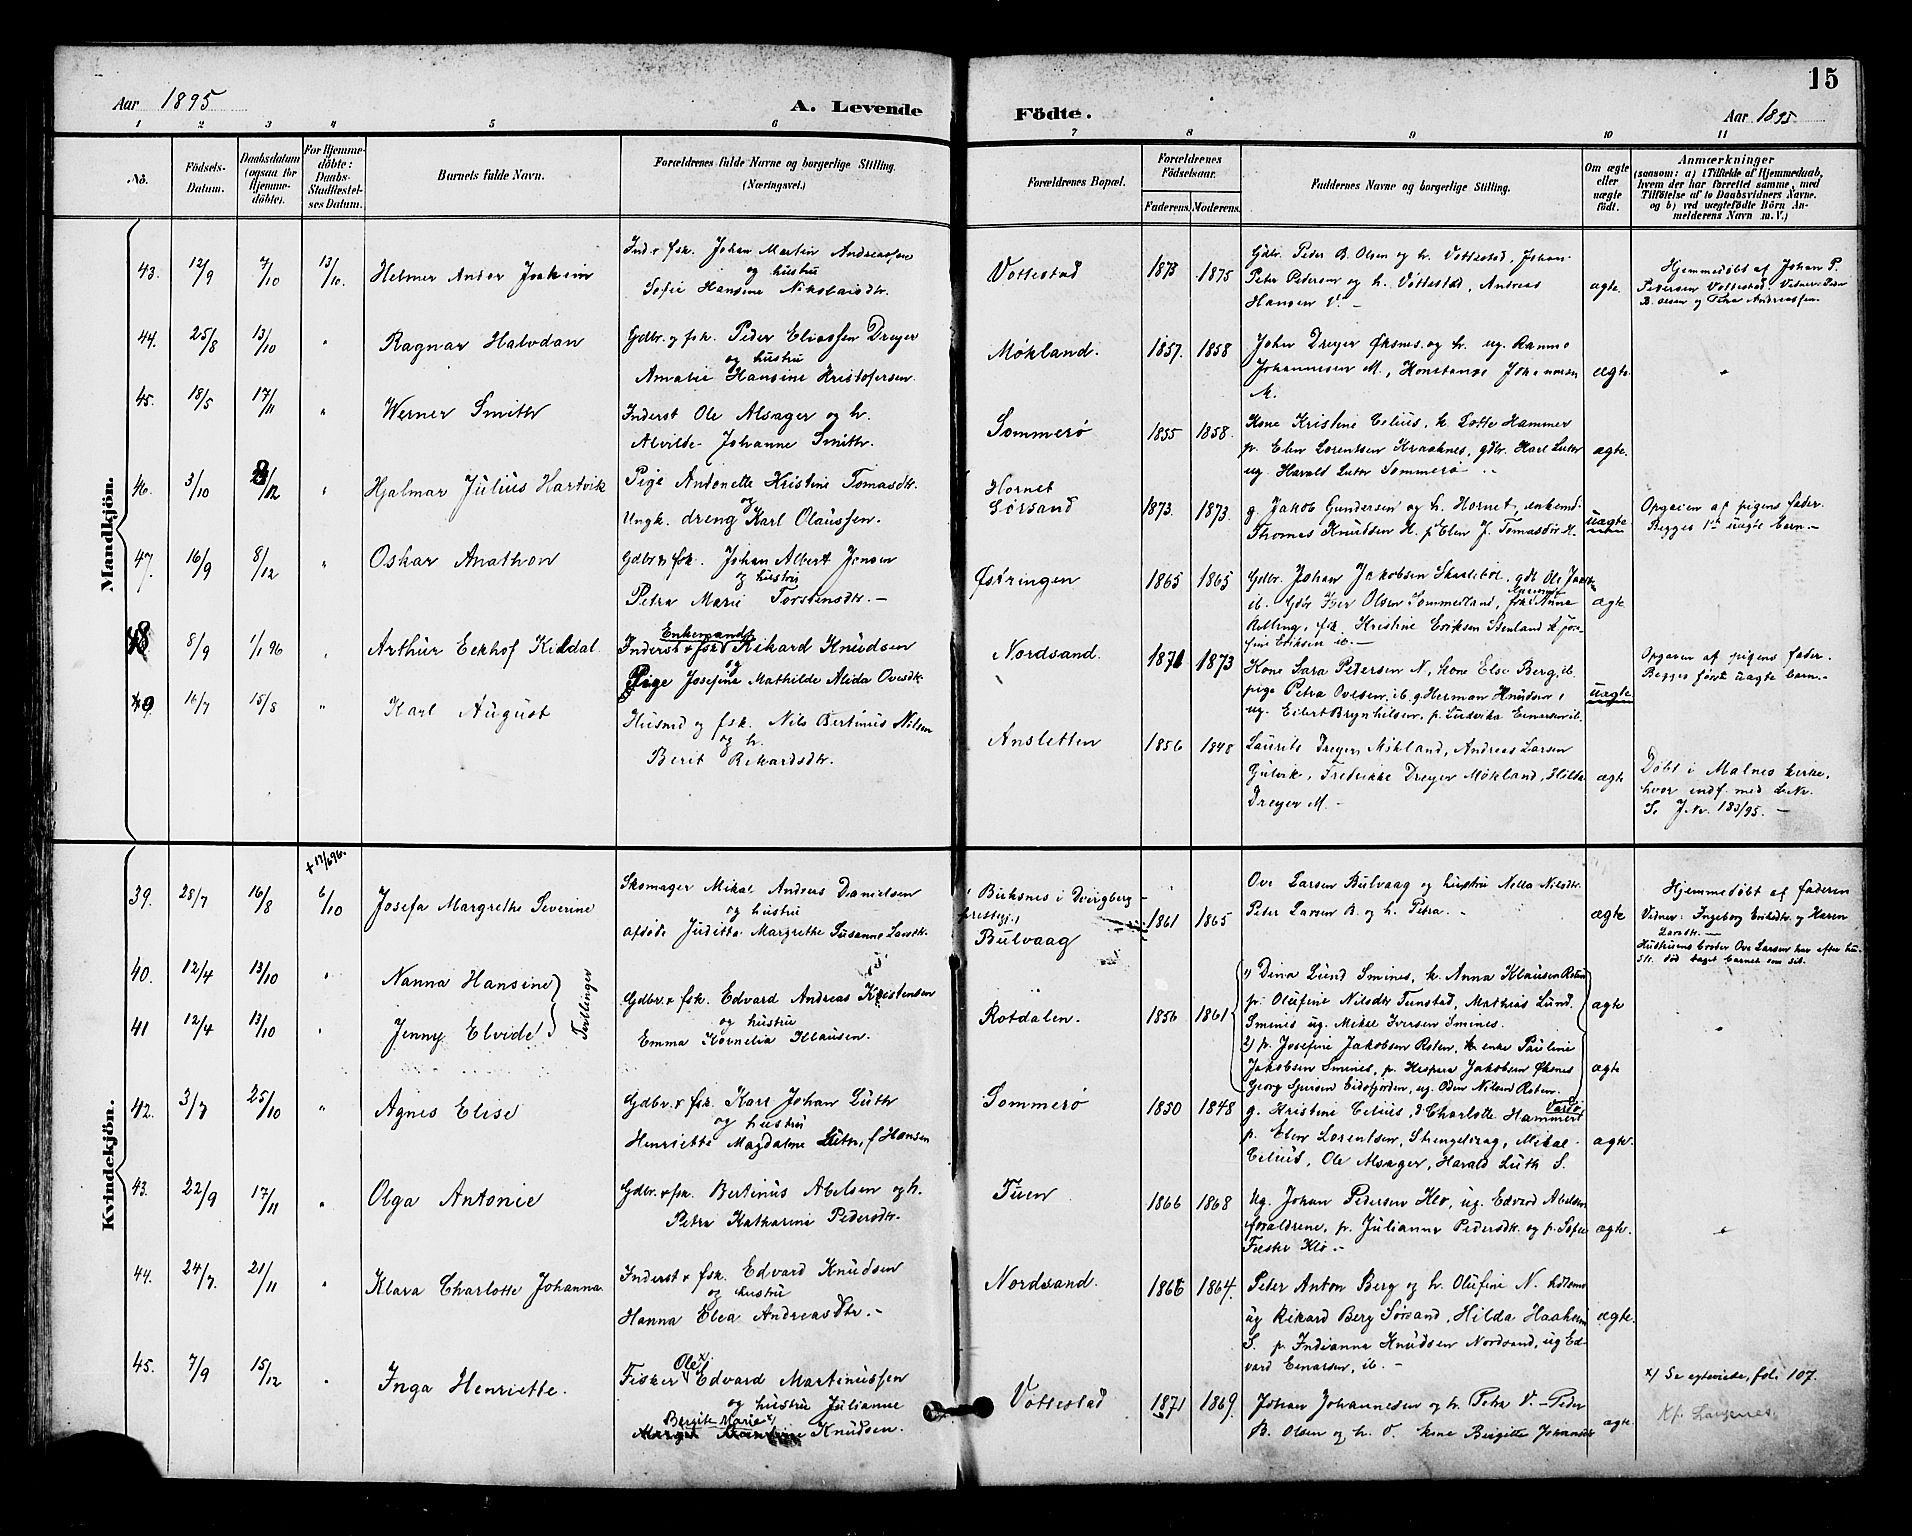 15
Aar 1895
A. Levende
Födte.
Aar 1895
1 2 3 4 5 6 7 8 9 10 11
No.
Födsels-
Datum.
Daabsdatum
(ogsaa for
Hjemme-
döbte).
For Hjemme-
döbte:
Daabs-
Stadfæstel-
ses Datum.
Barnets fulde Navn.
Forældrenes fulde Navne og borgerlige Stilling.
(Næringsvei.)
Forældrenes Bopæl.
Forældrenes
Födselsaar.
Faderens. Moderens.
Faddernes Navne og borgerlige Stilling.
Om ægte
eller
uægte
födt.
Anmærkninger
(saasom: a) i Tilfælde af Hjemmedaab,
hvem der har forrettet samme, med
Tilföielse af to Daabsvidners Navne.
og b) ved uægtefödte Börn An-
melderens Navn m. V.)
Mandkjön.
43. 12/9 7/10 13/10. Helmer Ander Joakim
Inds. & fsk. Johan Martin Andreassen
og hustru
Sofie Hansine Nikolaisdtr.
Vottestad 1873 1875
Gdbr. Peder B. Olsen og h. Vottestad, Johan
Peter Pedersen og h. Vottestad, Andreas
Hansen V. –
ægte.
Hjemmedøbt af Johan P.
Pedersen Vottestad. Vidner: Peder
B. Olsen og Andreassen.
44. 25/8 13/10 " Ragnar Halvdan
Gdbr. og fsk. Peder Eliassen Dreyer
og hustru
Amalie Hansine Kristofersen.
Møkland. 1857. 1858
John Dreyer Øksnes og h. ug. Ranmo
Johannesen M., Konstanse Johannesen
M.
ægte. "
45. 18/5 17/11 " Werner Smith
Inderst Ole Alsager og h.
Alvilde Johanne Smith.
Sommerø 1855 1858.
Kone Kristine Celius, k. Lotte Hammer
p. Elen Lorentsen Kraaknes, gdbr. Karl Luth
ug. Harald Luth Sommerø
ægte.
46. 3/10 8/12 " Hjalmar Julius Hartvik
Pige Antonette Kristine Tomasdtr.
og
Ungk. dreng Karl Olaussen.
Hornet
Sørsand 1873. 1873.
g. Jakob Gundersen og h. Hornet, enkemd.
Thomas Knudsen H. p. Elen J. Tomasdtr H.
uægte
Opgaven af pigens fader.
Begges 1ste uægte barn. –
47. 16/9 8/12 " Oskar Anathon
Gdbr. & fsk. Johan Albert Jensen
og hustru
Petra Marie Torstensdtr. –
Østringen 1865 1865
Gdbr. Johan Jakobsen Skaalebøl, gdbr. Ole
ib. Gdbr Iver Olsen Sommerland, fsk. Anne
Relling, fsk. Kristine Eriksen Stenland k. Jose-
fine Eriksen ib. –
ægte
48 8/9 1/1 96 " Arthur Eckhof Kildal
Enkemand
Inderst & fsk. Rikard Knudsen
og
Pige Josefine Mathilde Alida Ovesdtr.
Nordsand. 1871 1873
Kone Sara Petersen N, kone Else Berg, ib.
pige Petra Ovesen, ib. g. Herman Knudsen,
ug. Eilert Brynhilsen, p. Ludvika Einarsen ib.
uægte
Opgaven af pigens fader.
Begges første uægte barn. –
49 16/7 15/8 " Karl August
Husmd og fsk. Nils Bertinus Nilsen
og h.
Berit Rikardsdtr.
Ansletten 1856 1848
Laurits Dreyer Møkland, Andreas Larsen
Gulvik, Fredrikke Dreyer Møkland, Hilda
Dreyer M. –
ægte
Døbt i Malnes kirke,
hvor indf. med L.Nr.
S. J.Nr. 183/95. –
Kvindekjön.
39. 28/7 16/8 6/10 + 17/6 96. Josefa Margrethe Severine
Skomager Mikal Anders Danielsen
og hustru
afdøde Juditta Margrethe Susanne Larsdtr.
Birksnes i Dverberg
prestegj.
Bulvaag 1861 1865
Ove Larsen Bulvaag og hustru Nella Nilsdtr.
Peter Larsen B. og h. Petra. –
ægte
Hjemmedøbt af faderen
Vidner: Ingeborg Eriksdtr. og Karen
Larsdtr. –
Hustruens broder Ove Larsen har efter hu-
str. død taget barnet som sit.
40. 12/4 13/10 " Nanna Hansine
41 12/4 13/10 " Jenny Elvide
Tvillinger
Gdbr. & fsk. Edvard Andreas Kristensen
og hustru
Emma Kornelia Klausen.
Rotdalen. 1856 1861
1) Dina Lund Smines, k. Anna Klausen Roten
p. Olufine Nilsdtr Tunstad, Mathias Lund
Smines ug. Mikal Iversen Smines.
2) p. Josefine Jakobsen Roten, k. enke Pauline
Jakobsen Smines, p. Kaspara Jakobsen Øksnes
Georg Sjursen Eidsfjorden, ug. Oden Nilsen Roten.
ægte
ægte
"
42. 3/7 25/10 " Agnes Elise
Gdbr. & fsk. Karl Johan Luth
og hustru
Henriette Magdalene Luth, f. Hansen
Sommerø 1850 1848
g. Kristine Celius, Charlotte Hammert Vardø
p. Elen Lorentsen, Strengelvaag, Mikal
Celius, Ole Alsager, Harald Luth S.
ægte.
43. 22/9 17/11 " Olga Antonie
Gdbr. & fsk. Bertinus Abelsen og h.
Petra Katharina Pedersdtr.
Tuen 1866 1868
Ug. Johan Pedersen Klo, ug. Edvard Abelsen
forældrene, p. Julianna Pedersdtr. og p. Sofie
Klo. –
ægte. "
44. 24/7 21/11 " Klara Charlotte Johanna
Inderst & fsk. Edvard Knudsen
og hustru
Hanna Elea Andreasdtr. –
Nordsand. 1866 1864.
Peter Anton Berg og h. Olufine N.
ug Rikard Berg Sørsand, Hilda Haaheim
S. p. Indianna Knudsen Nordsand, ug Ed-
vard Einarsen, ib. –
ægte.
45. 7/9 15/12 " Inga Henriette.
Fisker Ole x) Edvard Martinussen
og hustru Julianne
Bergite Marie x)
Knudsen.
Vottestad 1871 1869.
Johan Johannesen og h. Petra V. – Peder
B. Olsen og h. kone Bergitte Johansdtr
ægte.
x) Se egtevirke, fol. 107.
Kf. Langenes.